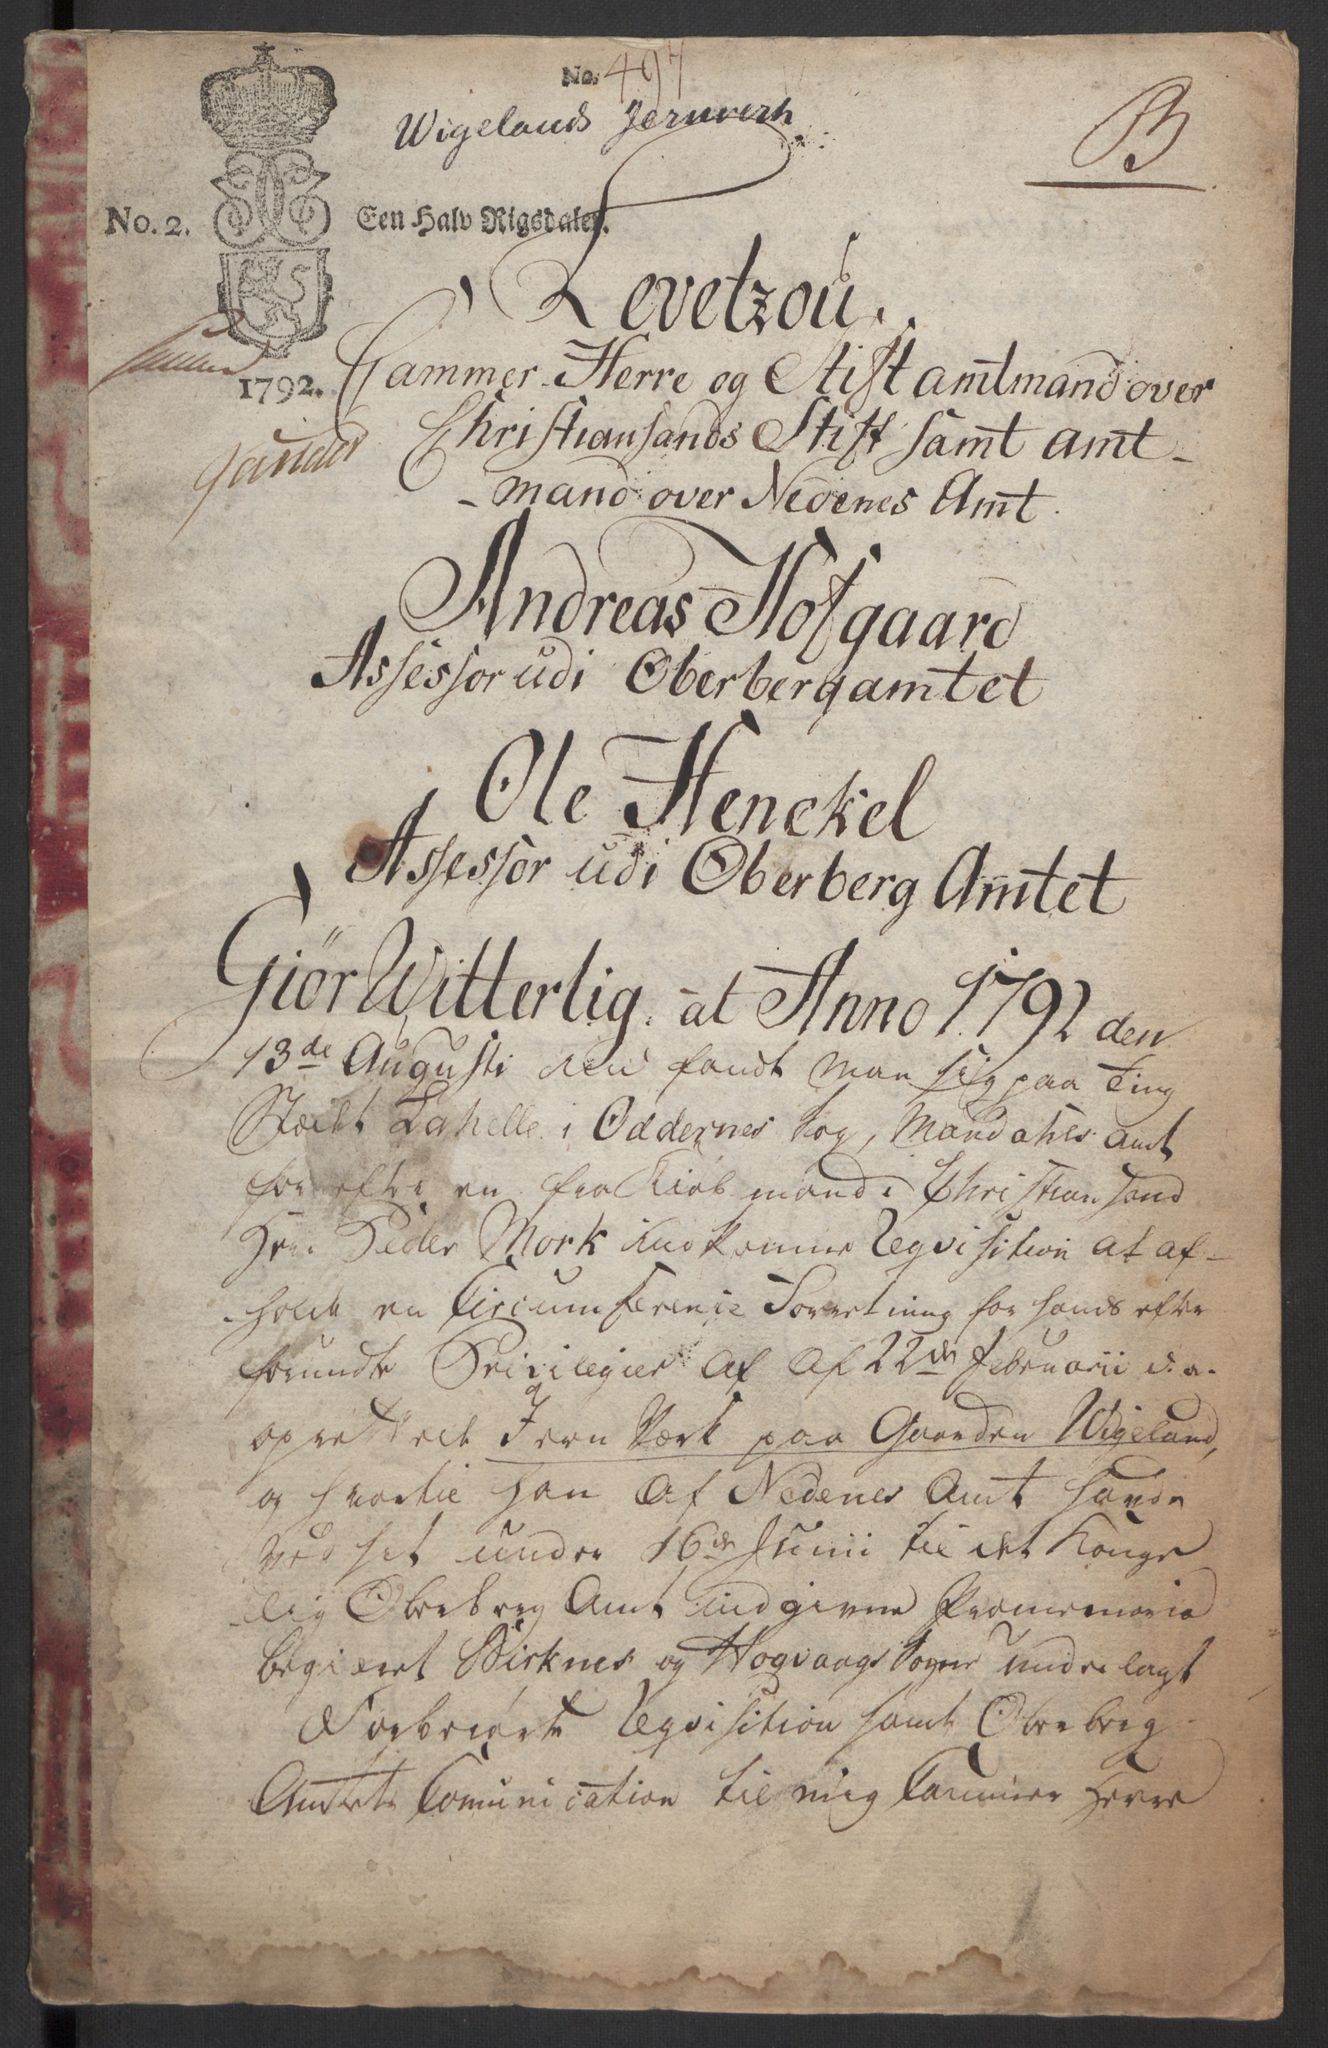 No. 497
Wigelands Jernverk
B
No. 2.
Een Halv Rigsdaler.
1792.
Levetzou
Cammer-Herre og Stiftamtmand over
Christiansands Stift samt amt-
-mand over Nedenes Amt.
Andreas Hofgaard
Assessor udi Oberbergamtet
Ole Henckel
Assessor udi Oberberg Amtet
Giør Witterlig at Anno 1792 den
13de Augusti fandt man sig paa Ting
Stædet Lahelle i Oddernes Sogn, Mandahls amt
for efter en fra Kiøbmand i Christiansand
Herr Peder Mork indkommen Reqvisition at af-
holde en Circumference Forretning for hands efter
forundte Privilegier af af 22de Februarii d: a:
oprettede Jern Værk paa Gaarden Wigeland,
og hvortil han af Nedenes Amt havde
ved sit under 16de Junii til det Konge
lig Oberberg Amt indgivne Promemoria
begiæret Birknes og Hogvaags Sogne underlagt
Forberørte Reqvisition samt Oberberg
Amtets Comunication til mig Cammer Herre